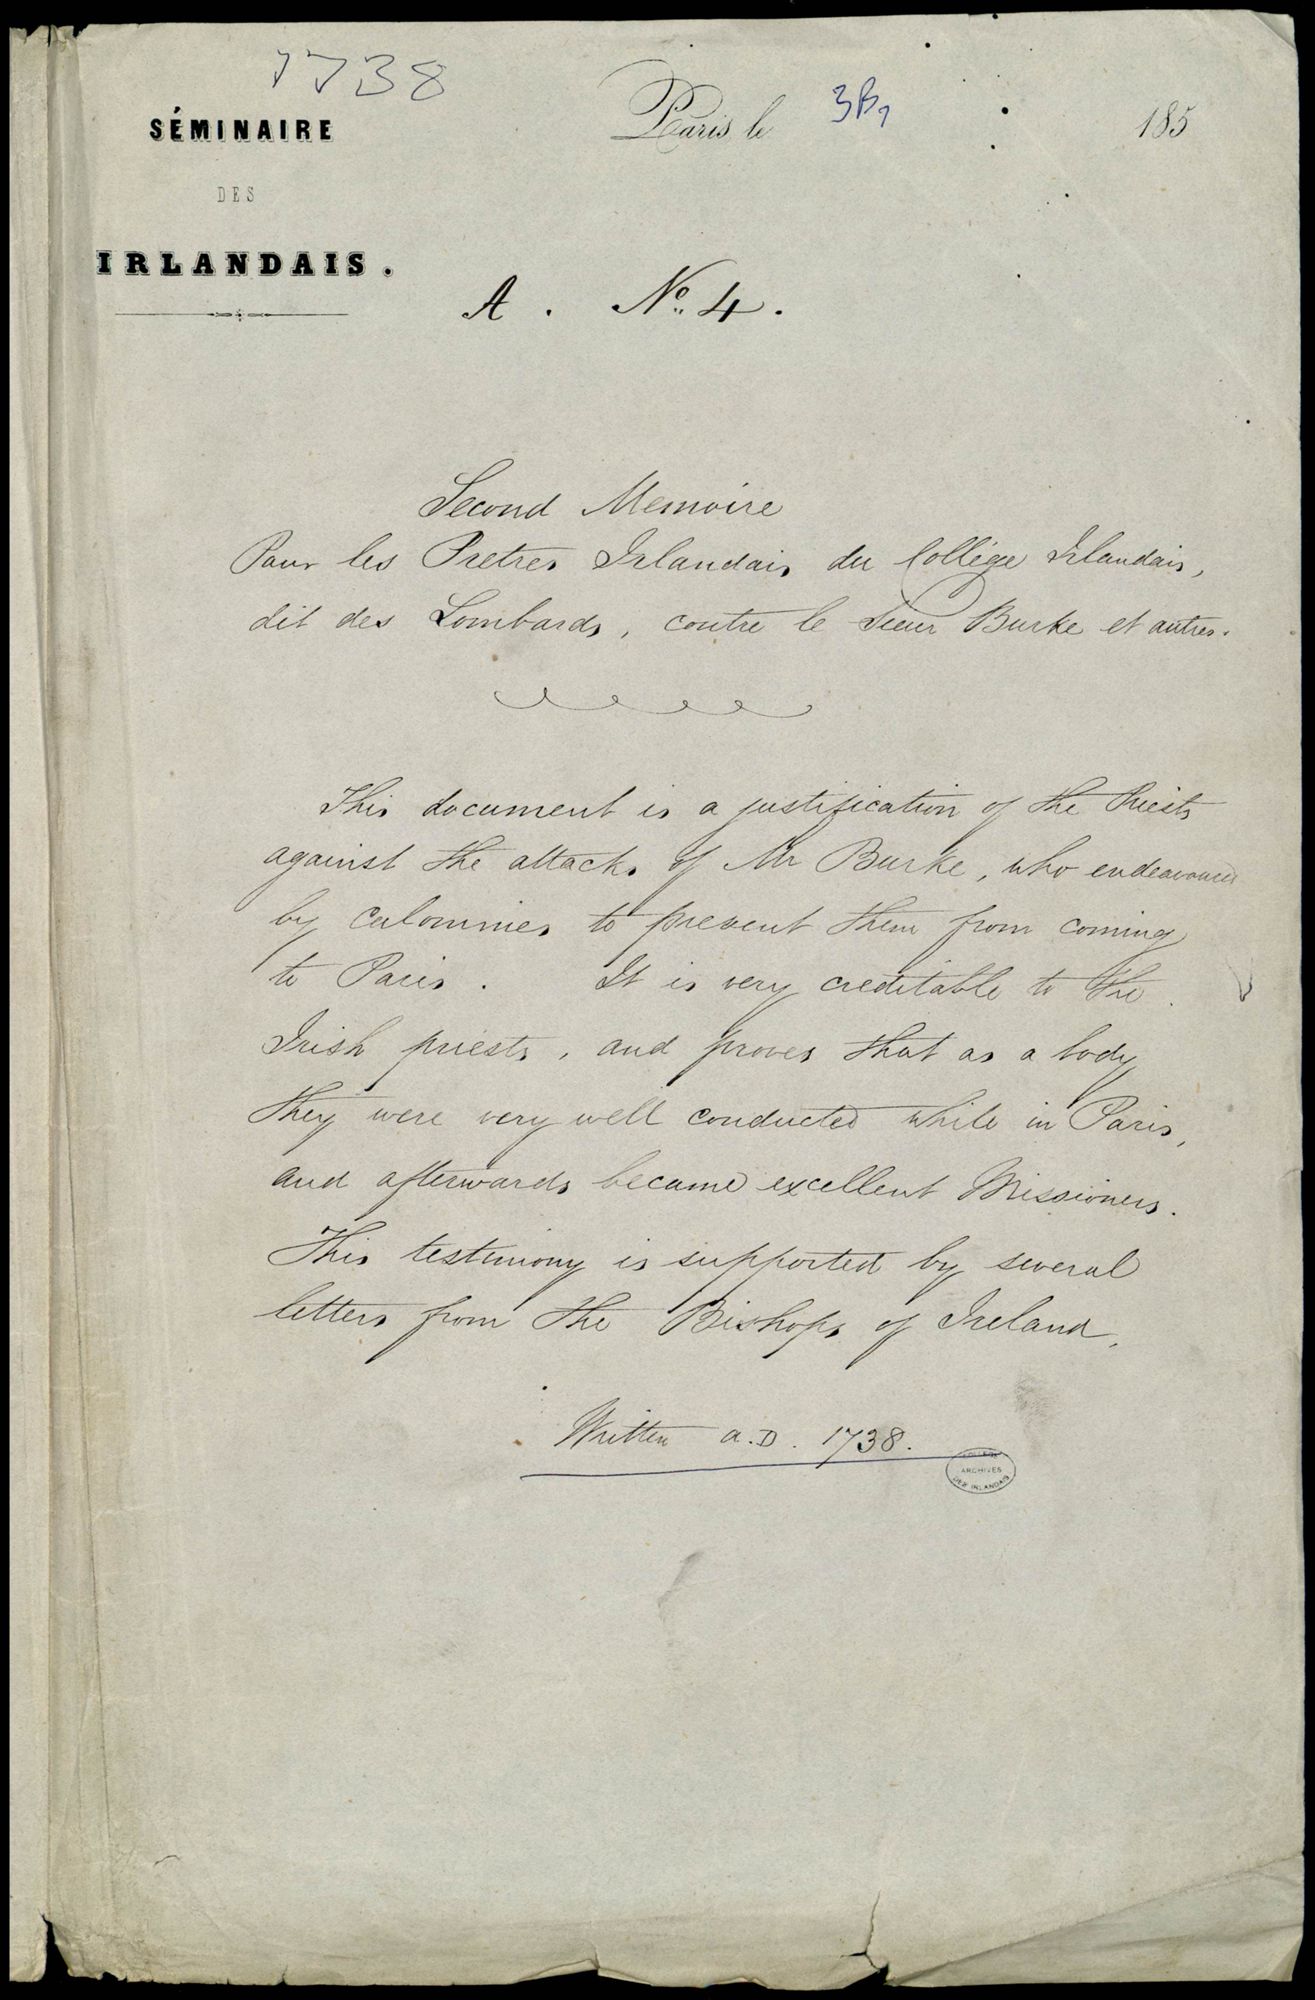 1738
SÉMINAIRE
DES
IRLANDAIS.
Paris le 3B1 185
A. No. 4.
Second Memoire
Pour les Pretres Irlandais du Collége Irlandais,
dit des Lombards, contre le Sieur Burke et autres.
This document is a justification of the Priests
against the attacks of Mr Burke, who endeavoured
by calomnies to prevent them from coming
to Paris. It is very creditable to the
Irish priests, and proves that as a body
they were very well conducted while in Paris,
and afterwards became excellent Missioners.
This testimony is supported by several
letters from the Bishops of Ireland.
Written A.D. 1738.
COLLEGE
ARCHIVES
DES IRLANDAIS